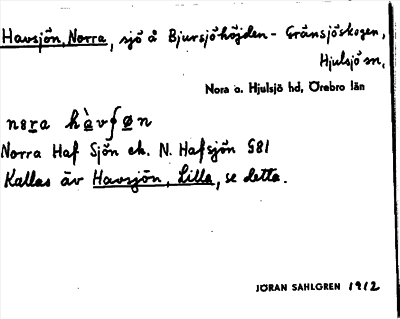 Havsjön, Norra, sjö å Bjursjöhöjden - Gränsjöskogen,
Hjulsjö sn,
Nora o. Hjulsjö hd, Örebro län
nora hàvʃøn
Norra Haf Sjön ek. N. Hafsjön G81
Kallas äv Havsjön, Lilla, se detta.
JÖRAN SAHLGREN 1912